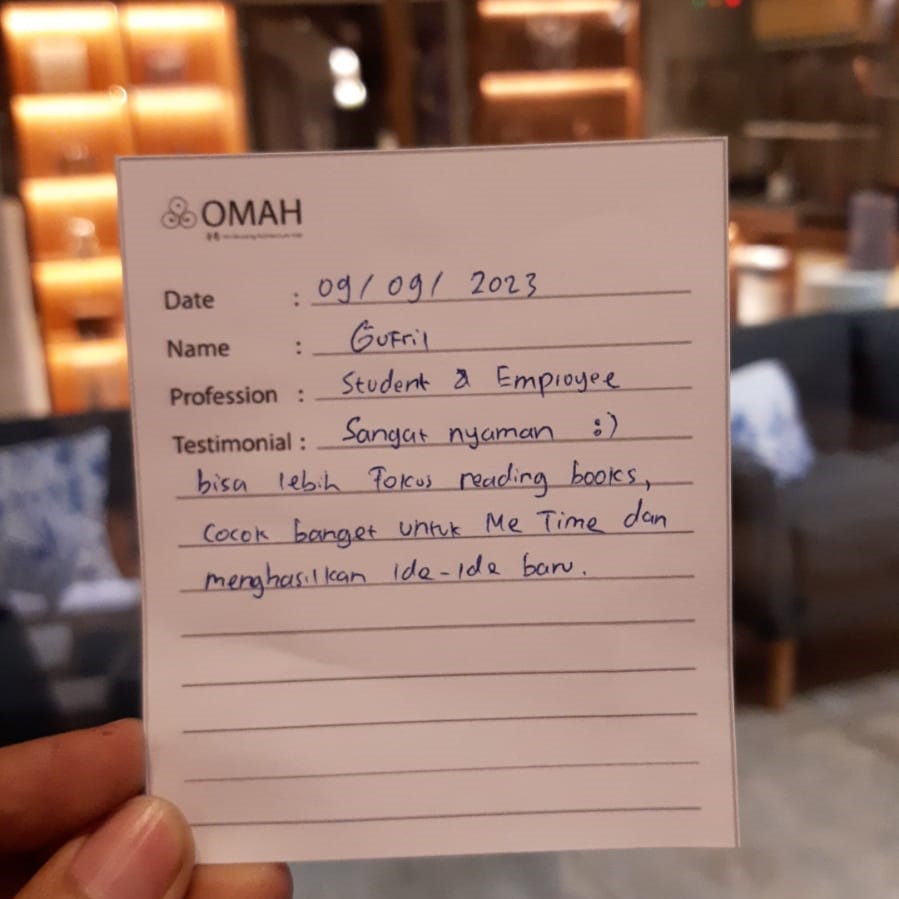 OMAH
Date : 09/09/2023
Name : Gufril
Profession : Student & Employee
Testimonial : Sangat nyaman :)
bisa lebih Fokus reading books,
Cocok banget untuk Me Time dan
menghasilkan ide-ide baru.